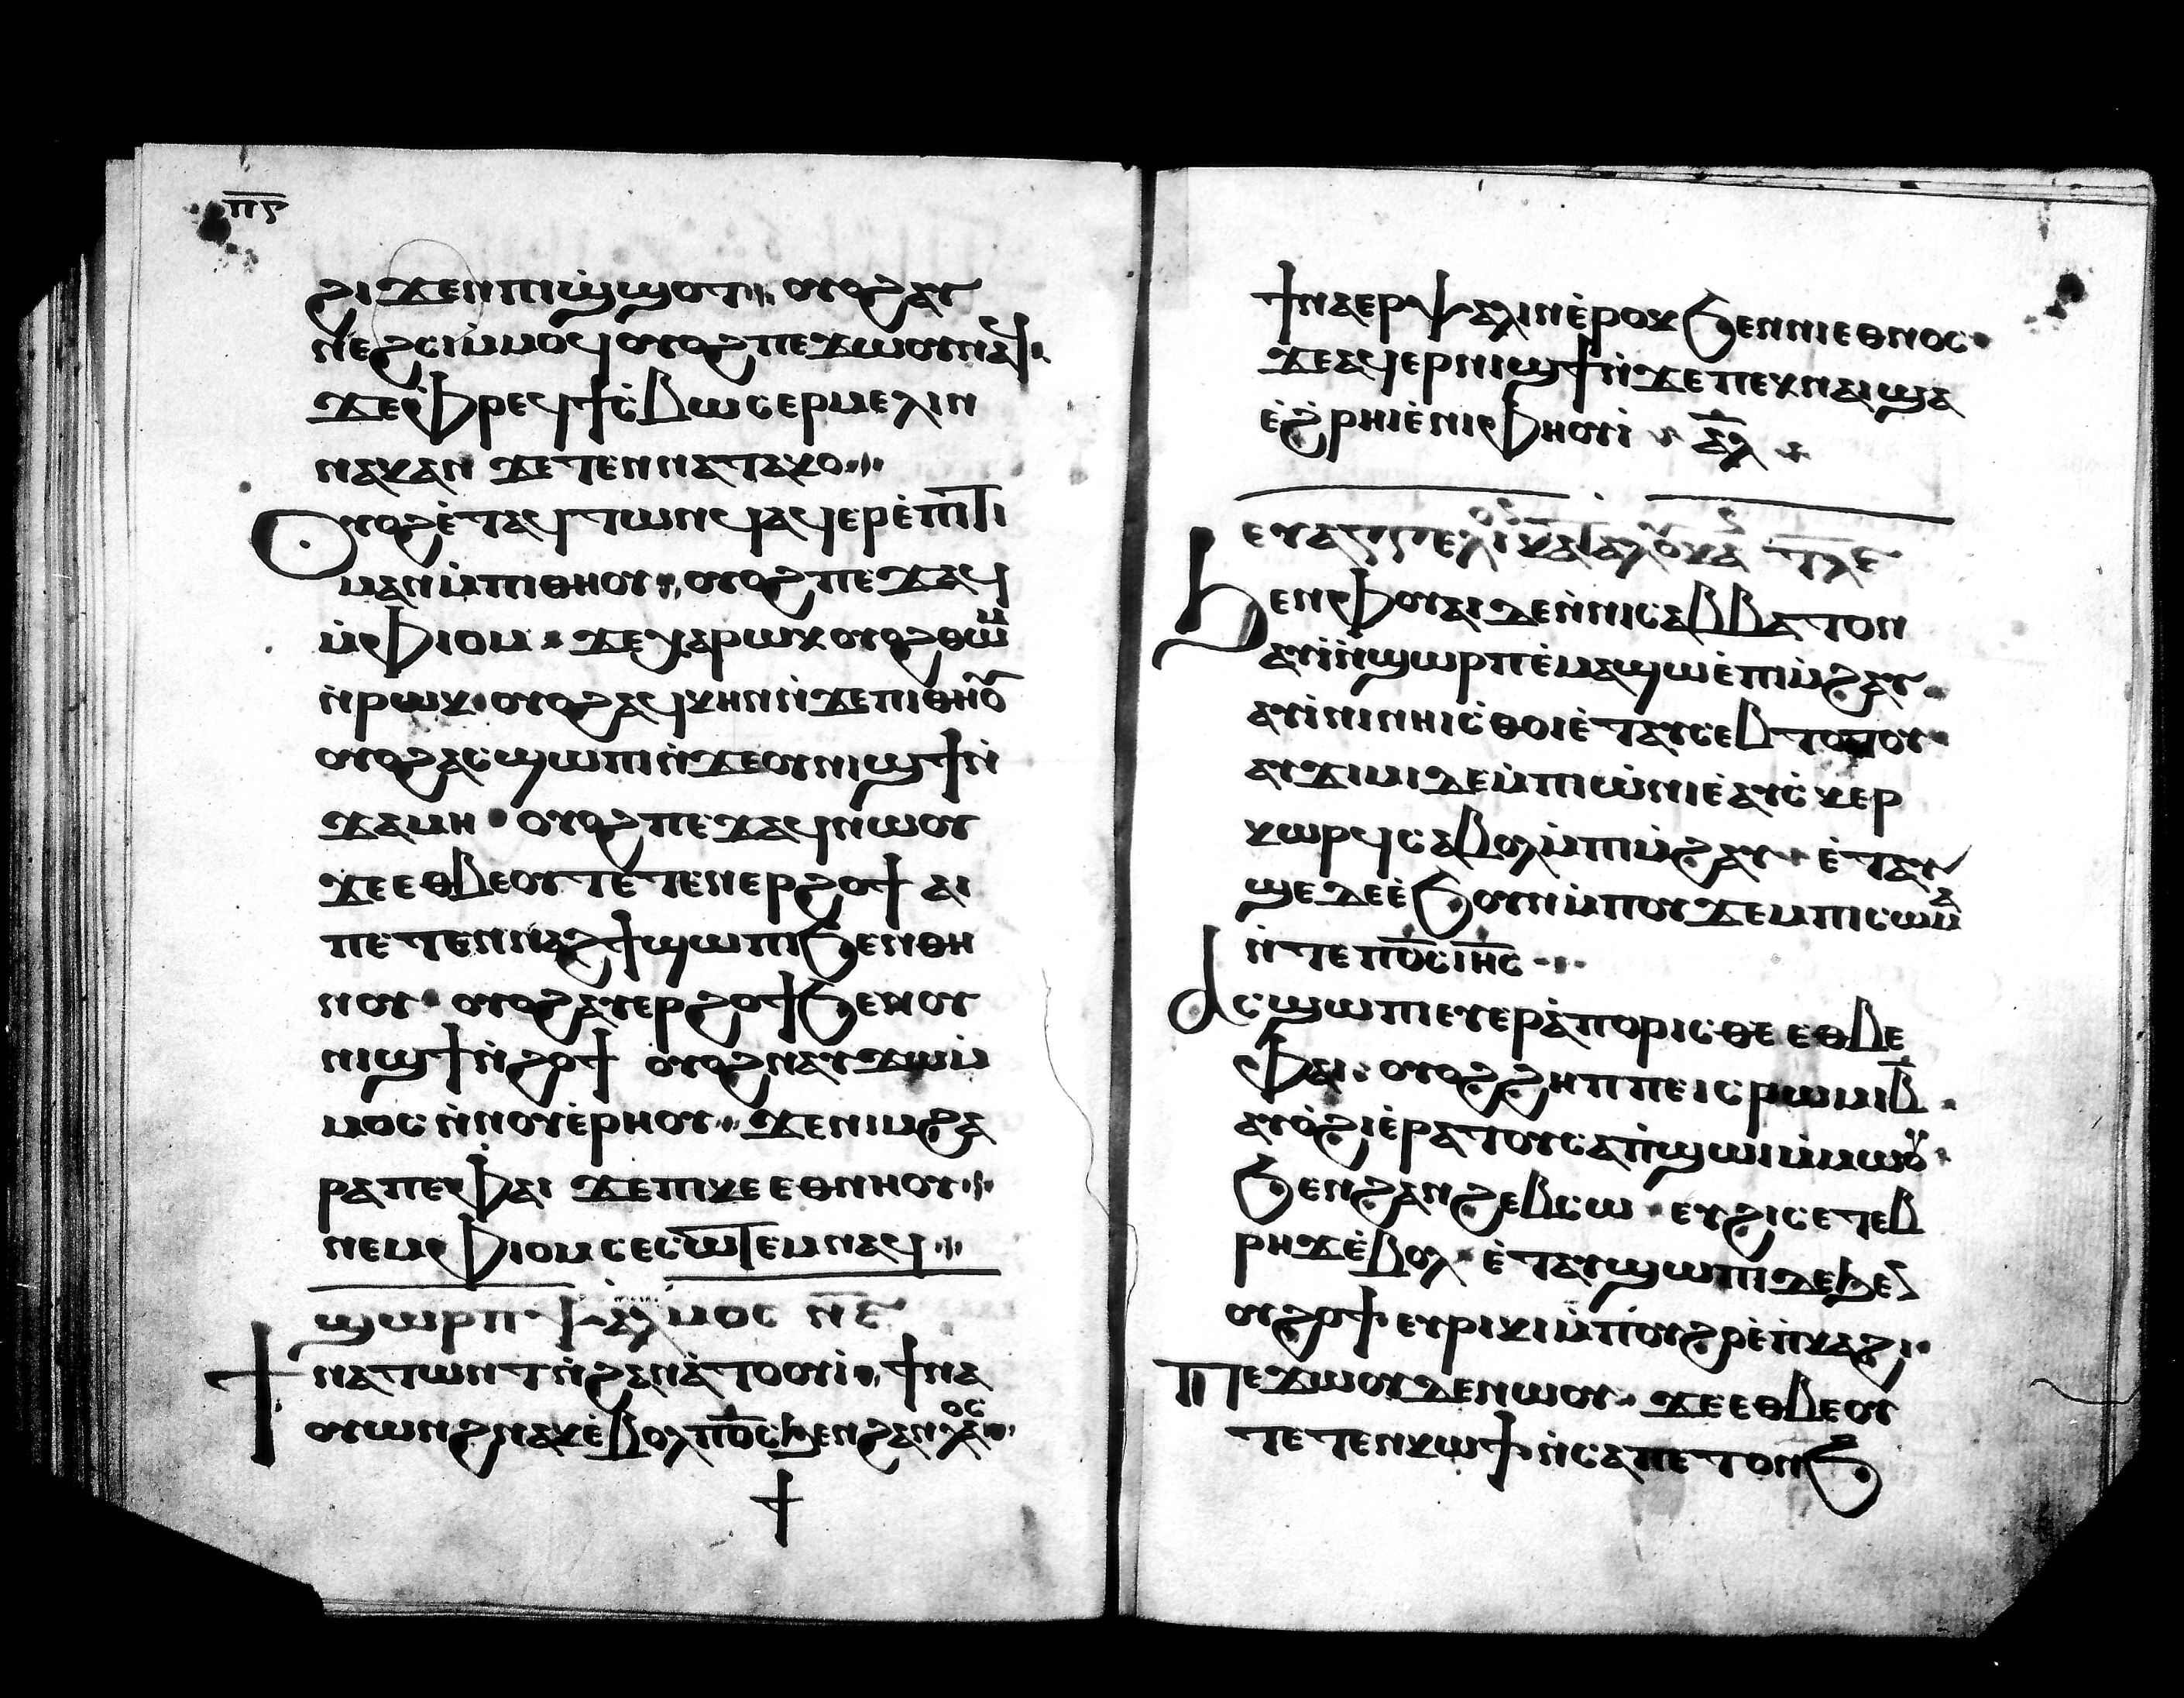 ⲡ︦ⲋ︦
ϩⲓϫⲉⲛⲡⲓϣ̀ϣⲟⲧ ⲟⲩⲟϩⲁⲩ
ⲛⲉϩⲥⲓⲙ̀ⲙⲟϥ ⲟⲩⲟϩⲡⲉϫⲱⲟⲩⲛⲁϥ
ϫⲉⲫ̀ⲣⲉϥϯⲥ̀ⲃⲱ ⲥⲉⲣⲙⲉⲗⲓⲛ
ⲛⲁⲕⲁⲛ ϫⲉⲧⲉⲛⲛⲁⲧⲁⲕⲟ
Ⲟⲩⲟϩⲉ̀ⲧⲁϥⲧⲱⲛϥ ⲁϥⲉⲣⲉ̀ⲡⲓⲧⲓ
ⲙⲁⲛ ⲙ̀ⲡⲓⲑⲏⲟⲩ ⲟⲩⲟϩⲡⲉϫⲁϥ
ⲙ̀ⲫⲓⲟⲙ ϫⲉⲭⲁⲣⲱⲕ ⲟⲩⲟϩⲑⲱⲙ
ⲛ̀ⲣⲱⲕ ⲟⲩⲟϩⲁϥⲕⲏⲛ ⲛ̀ϫⲉⲡⲓⲑⲏⲟⲩ
ⲟⲩⲟϩⲁⲥϣⲱⲡⲓ ⲛ̀ϫⲉⲟⲩⲛⲓϣϯ ⲛ̀
ϫⲁⲙⲏ ⲟⲩⲟϩⲡⲉϫⲁϥⲛⲱⲟⲩ
ϫⲉⲉⲑⲃⲉⲟⲩ ⲧⲉⲧⲉⲛⲉⲣϩⲟϯ ⲁⲓ
ⲡⲉⲧⲉⲛⲛⲁϩϯ ϣⲱⲡⲓ ϧⲉⲛⲑⲏ
ⲛⲟⲩ ⲟⲩⲟϩⲁⲩⲉⲣϩⲟϯ ϧⲉⲛⲟⲩ
ⲛⲓϣϯ ⲛ̀ϩⲟϯ ⲟⲩⲟϩⲛⲁⲩϫⲱⲙ̀
ⲙⲟⲥ ⲛ̀ⲛⲟⲩⲉ̀ⲣⲏⲟⲩ ϫⲉⲛⲓⲙϩⲁ
ⲣⲁⲡⲉⲫⲁⲓ ϫⲉⲡⲓⲕⲉⲉⲑⲛⲏⲟⲩ
ⲛⲉⲙⲫⲓⲟⲙ ⲥⲉⲥⲱⲧⲉⲙⲛⲁϥ
ϣⲱⲣⲡ ⲯⲁⲗⲙⲟⲥ ⲛ︦ⲉ︦
Ϯⲛⲁⲧⲱⲛⲧ ⲛ̀ϩⲁⲛⲁ̀ⲧⲟⲟⲩⲓ̀ ϯⲛⲁ
ⲟⲩⲱⲛϩⲛⲁⲕ ⲉ̀ⲃⲟⲗ ⲡ̅ⲟ̅ⲥ̅ ϧⲉⲛϩⲁⲛⲗⲁⲟⲥ
ϯ
ϯⲛⲁⲉⲣⲯⲁⲗⲓⲛ ⲉ̀ⲣⲟⲕ ϧⲉⲛⲛⲓⲉⲑⲛⲟⲥ
ϫⲉⲁϥⲉⲣⲛⲓϣϯ ⲛ̀ϫⲉⲡⲉⲕⲛⲁⲓ ϣⲁ
ⲉ̀ϩ̀ⲣⲏⲓ ⲉ̀ⲛⲓⲫⲏⲟⲩⲓ̀ ⲁ̅ⲗ̅
ⲉⲩⲁⲅⲅⲉⲗⲓ ⲕⲁⲧⲁⲗⲟⲩⲕⲁ ⲧ︦ⲗ︦ⲉ︦
Ϧⲉⲛⲫⲟⲩⲁⲓ ⲇⲉ ⲛ̀ⲛⲓⲥⲁⲃⲃⲁⲧⲟⲛ
ⲁⲩⲓ̀ ⲛ̀ϣⲱⲣⲡ ⲉ̀ⲙⲁϣⲱ ⲉ̀ⲡⲓⲙ̀ϩⲁⲩ
ⲁⲩⲓ̀ⲛⲓ ⲛⲏⲓⲥ̀ⲑⲟⲓ ⲉ̀ⲧⲁⲩⲥⲉⲃⲧⲟⲧⲟⲩ
ⲁⲩϫⲓⲙⲓ ⲇⲉ ⲙ̀ⲡⲓⲱ̀ⲛⲓ ⲉ̀ⲁⲩⲥ̀ⲕⲉⲣ
ⲕⲱⲣϥ ⲥⲁⲃⲟⲗ ⲙ̀ⲡⲓⲙ̀ϩⲁⲩ ⲉ̀ⲧⲁⲩ
ϣⲉ ⲇⲉ ⲉ̀ϧⲟⲩⲛ ⲙ̀ⲡⲟⲩϫⲉⲙ ⲡⲓⲥⲱⲙⲁ
ⲛ̀ⲧⲉ ⲡ̅ⲟ̅ⲥ̅ ⲓ̅ⲏ̅ⲥ̅
Ⲁⲥϣⲱⲡⲓ ⲉⲩⲉⲣⲁ̀ⲡⲟⲣⲓⲥⲑⲉ ⲉⲑⲃⲉ
ⲫⲁⲓ ⲟⲩⲟϩ ϩⲏⲡⲡⲉ ⲓⲥ ⲣⲱⲙⲓ ⲃ̅
ⲁⲩⲟ̀ϩⲓ ⲉ̀ⲣⲁⲧⲟⲩ ⲥⲁⲡ̀ϣⲱⲓ ⲙ̀ⲙⲱⲟⲩ
ϧⲉⲛϩⲁⲛϩⲉⲃⲥⲱ ⲉⲩϩⲓⲥⲉⲧⲉⲃ
ⲣⲏϫ ⲉ̀ⲃⲟⲗ ⲉ̀ⲧⲁⲩϣⲱⲡⲓ ⲇⲉ ϧⲉⲛ
ⲟⲩϩⲟϯ ⲉⲩⲣⲓⲕⲓ ⲙ̀ⲡⲟⲩϩⲟ ⲉ̀ⲡ̀ⲕⲁϩⲓ
Ⲡⲉϫⲱⲟⲩ ⲇⲉ ⲛⲱⲟⲩ ϫⲉⲉⲑⲃⲉⲟⲩ
ⲧⲉⲧⲉⲛⲕⲱϯ ⲛ̀ⲥⲁⲡⲉⲧⲟⲛϧ